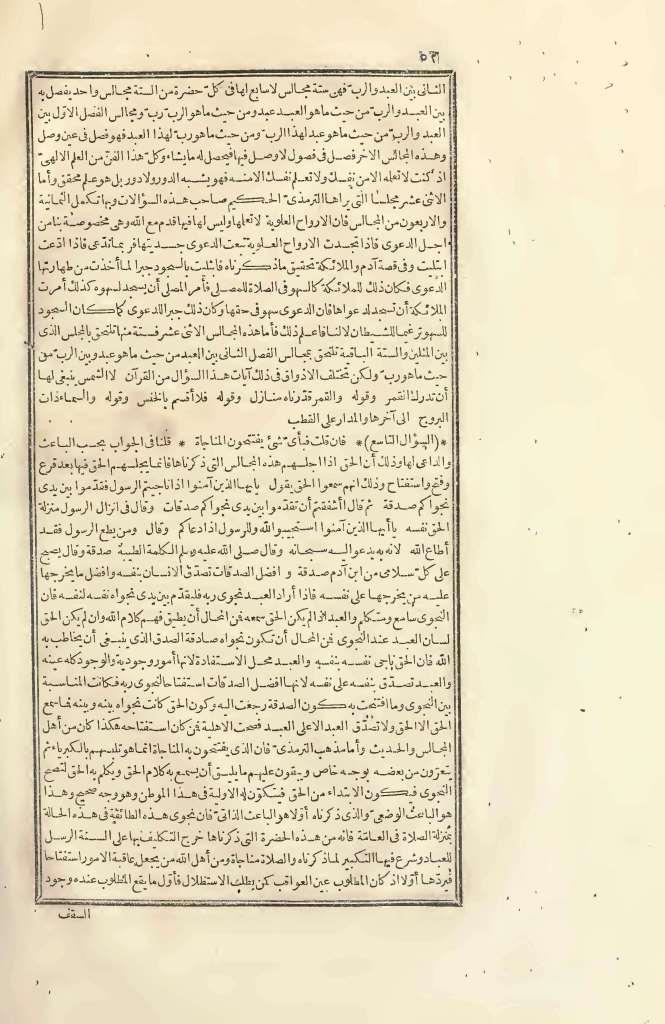 ٥٢
الثانى بين العبد والرب فهى ستة مجالس لا سابع لها فى كل حضرة من الستة مجالس واحد يفصل به
بين العبد والرب من حيث ما هو العبد عبد ومن حيث ما هو الرب رب ومجالس الفصل الاوّل بين
العبد والرب من حيث ما هو عبد لهذا الرب ومن حيث ما هو رب لهذا العبد فهو فصل فى عين وصل
وهذه المجالس الاخر فصل فى فصول لا وصل فيها فيحصل له ما يشاء وكل هذا الفنّ من العلم الالهىّ
اذ كنت لا تعلمه الا من نفسك ولا تعلم نفسك الا منه فهو يشبه الدور ولا دور بل هو علم محقق وأما
الاثنى عشر مجلسا التى يراها الترمذىّ الحكيم صاحب هذه السؤالات وبها تكمل الثمانية
والاربعون من المجالس فان الارواح العلوية لا تعلمها وليس لها فيها قدم مع الله وهى مخصوصة بنا من
اجل الدعوى فاذا تجسدت الارواح العلوية تبعت الدعوى جسديتها فربما تدّعى فاذا ادّعت
ابتليت وفى قصة آدم والملائكة تحقيق ما ذكرناه فابتليت بالسجود جبرا لما أخذت من طهارتها
الدعوى فكان ذلك للملائكة كالسهو فى الصلاة للمصلى فأمر المصلى أن يسجد لسهوه كذلك أمرت
الملائكة أن تسجد لدعواها فان الدعوى سهو فى حقها وكان ذلك جبر الدعوى كما كان السجود
للسهو ترغيما للشيطان لا لنا فاعلم ذلك فأما هذه المجالس الاثنى عشر فستة منها تلتحق بالمجلس الذى
بين المثلين والستة الباقية تلتحق بمجالس الفصل الثانى بين العبد من حيث ما هو عبد وبين الرب من
حيث ما هو رب ولكن تختلف الاذواق فى ذلك آيات هذا السؤال من القرآن لا الشمس ينبغى لها
أن تدرك القمر وقوله والقمر قدّرناه منازل وقوله فلا أقسم بالخنس وقوله والسماء ذات
البروج الى آخرها والمدار على القطب
*(السؤال التاسع)* فان قلت فبأى شئ يفتتحون المناجاة * قلنا فى الجواب بحسب الباعث
والداعى لها وذلك أن الحق اذا اجلسهم هذه المجالس التى ذكرناها فانما يجلسهم الحق فيها بعد قرع
وفتح واستفتاح وذلك انهم سمعوا الحق يقول يا يها الذين آمنوا اذا ناجيتم الرسول فقدّموا بين يدى
نجواكم صدقة ثم قال أأشفقتم أن تقدّموا بين يدى نجواكم صدقات وقال فى انزال الرسول منزلة
الحق نفسه يا أيها الذين آمنوا استجيبوا لله وللرسول اذا دعاكم وقال ومن يطع الرسول فقد
أطاع الله لانه به يدعو اليه سبحانه وقال صلى الله عليه وسلم الكلمة الطيبة صدقة وقال يصبح
على كل سلامى من ابن آدم صدقة و افضل الصدقات تصدّق الانسان بنفسه وافضل ما يخرجها
عليه من يخرجها على نفسه فاذا أراد العبد نجوى ربه فليقدّم بين يدى نجواه نفسه لنفسه فان
النجوى سامع ومتكلم والعبد اذ الم يكن الحق سمعه فمن المحال أن يطيق فهم كلام الله وان لم يكن الحق
لسان العبد عند النجوى فمن المحال أن تكون نجواه صادقة الصدق الذى ينبغى أن يخاطب به
الله فان الحق ناجى نفسه بنفسه والعبد محل الاستفادة لانها أمور وجودية والوجود كله عينه
والعبد تصدّق بنفسه على نفسه لانها افضل الصدقات استفتاحا لنجوى ربه فكانت المناسبة
بين النجوى وما افتتحت به كون الصدقة رجعت اليه وكون الحق كانت نجواه بينه وبينه فما سمع
الحق الا الحق ولا تصدّق العبد الا على العبد فصحت الاهلية فمن كان استفتاحه هكذا كان من أهل
المجالس والحديث وأما مذهب الترمذىّ فان الذى يفتتحون به المناجاة انما هو تلبسهم بالكبرياء ثم
يتعرّون من بعضه بوجه خاص ويبقون عليهم ما يليق أن يسمع به كلام الحق ويكلم به الحق لتصح
النجوى فيكون الابتداء من الحق فيتكوّن له الاولية فى هذا الموطن وهو وجه صحيح وهذا
هو الباعث الوضعىّ والذى ذكرناه أوّلا هو الباعث الذاتىّ فان نجوى هذه الطائفة فى هذه الحالة
بمنزلة الصلاة فى العامّة فانه من هذه الحضرة التى ذكرناها خرج التكليف بها على ألسنة الرسل
للعباد وشرع فيها التكبير لما ذكرناه والصلاة مناجاة ومن أهل الله من يجعل عاقبة الامور استفتاحا
فيردّها أوّلا اذ كان المطلوب عين العواقب كمن يطلب الاستظلال فأوّل ما يقع المطلوب عنده وجود
السقف